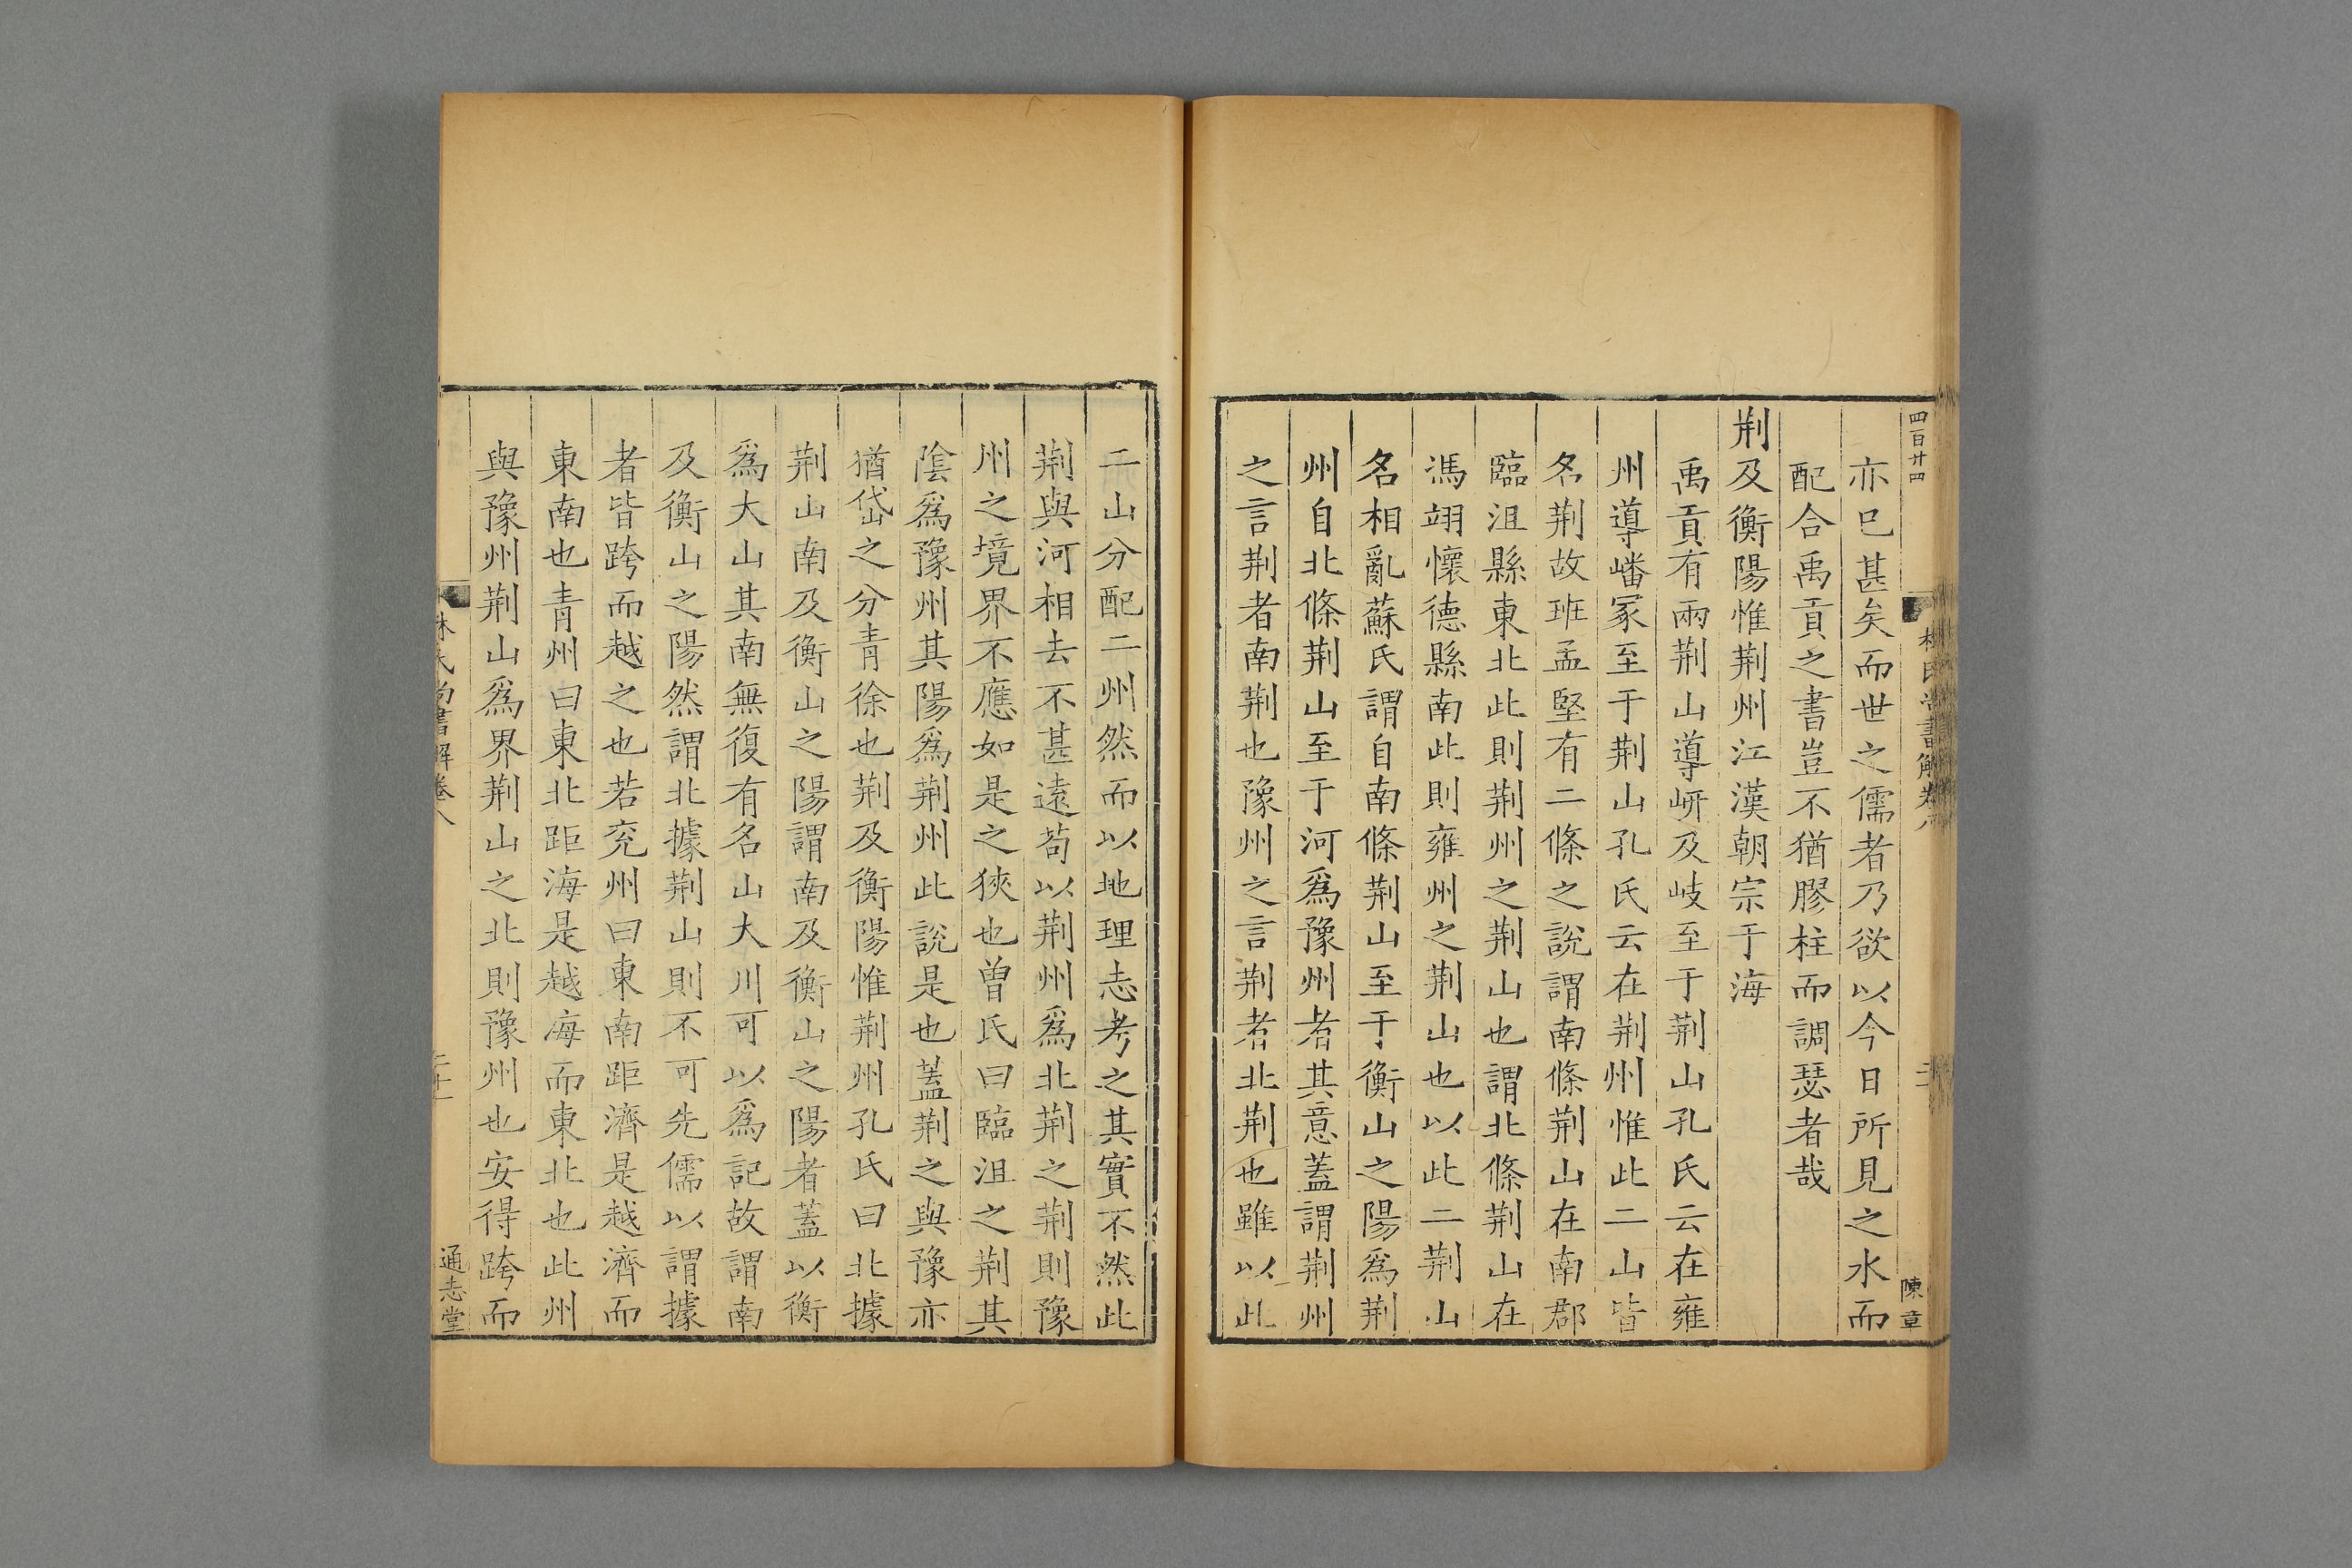 四百廿四
陳章
亦已甚矣而世之儒者乃欲以今日所見之水而
配合禹貢之書豈不猶膠柱而調瑟者哉
荆及衡陽惟荆州江漢朝宗于海
禹貢有兩荆山導岍及岐至于荆山孔氏云在雍
州導嶓冢至于荆山孔氏云在荆州惟此二山皆
名荆故班孟堅有二條之說謂南條荆山在南郡
臨沮縣東北此則荆州之荆山也謂北條荆山在
馮翊懷德縣南此則雍州之荆山也以此二荆山
名相亂蘇氏謂自南條荆山至于衡山之陽爲荆
州自北條荆山至于河爲豫州者其意蓋謂荆州
之言荆者南荆也豫州之言荆者北荆也雖以此
二山分配二州然而以地理志考之其實不然此
荆與河相去不甚遠苟以荆州爲北荆之荆則豫
州之境界不應如是之狹也曾氏曰臨沮之荆其
陰爲豫州其陽爲荆州此說是也蓋荆之與豫亦
猶岱之分青徐也荆及衡陽惟荆州孔氏曰北據
荆山南及衡山之陽謂南及衡山之陽者蓋以衡
爲大山其南無復有名山大川可以爲記故謂南
及衡山之陽然謂北據荆山則不可先儒以謂據
者皆跨而越之也若兖州曰東南距濟是越濟而
東南也青州曰東北距海是越海而東北也此州
與豫州荆山爲界荆山之北則豫州也安得跨而
林氏尚書解卷八
通志堂